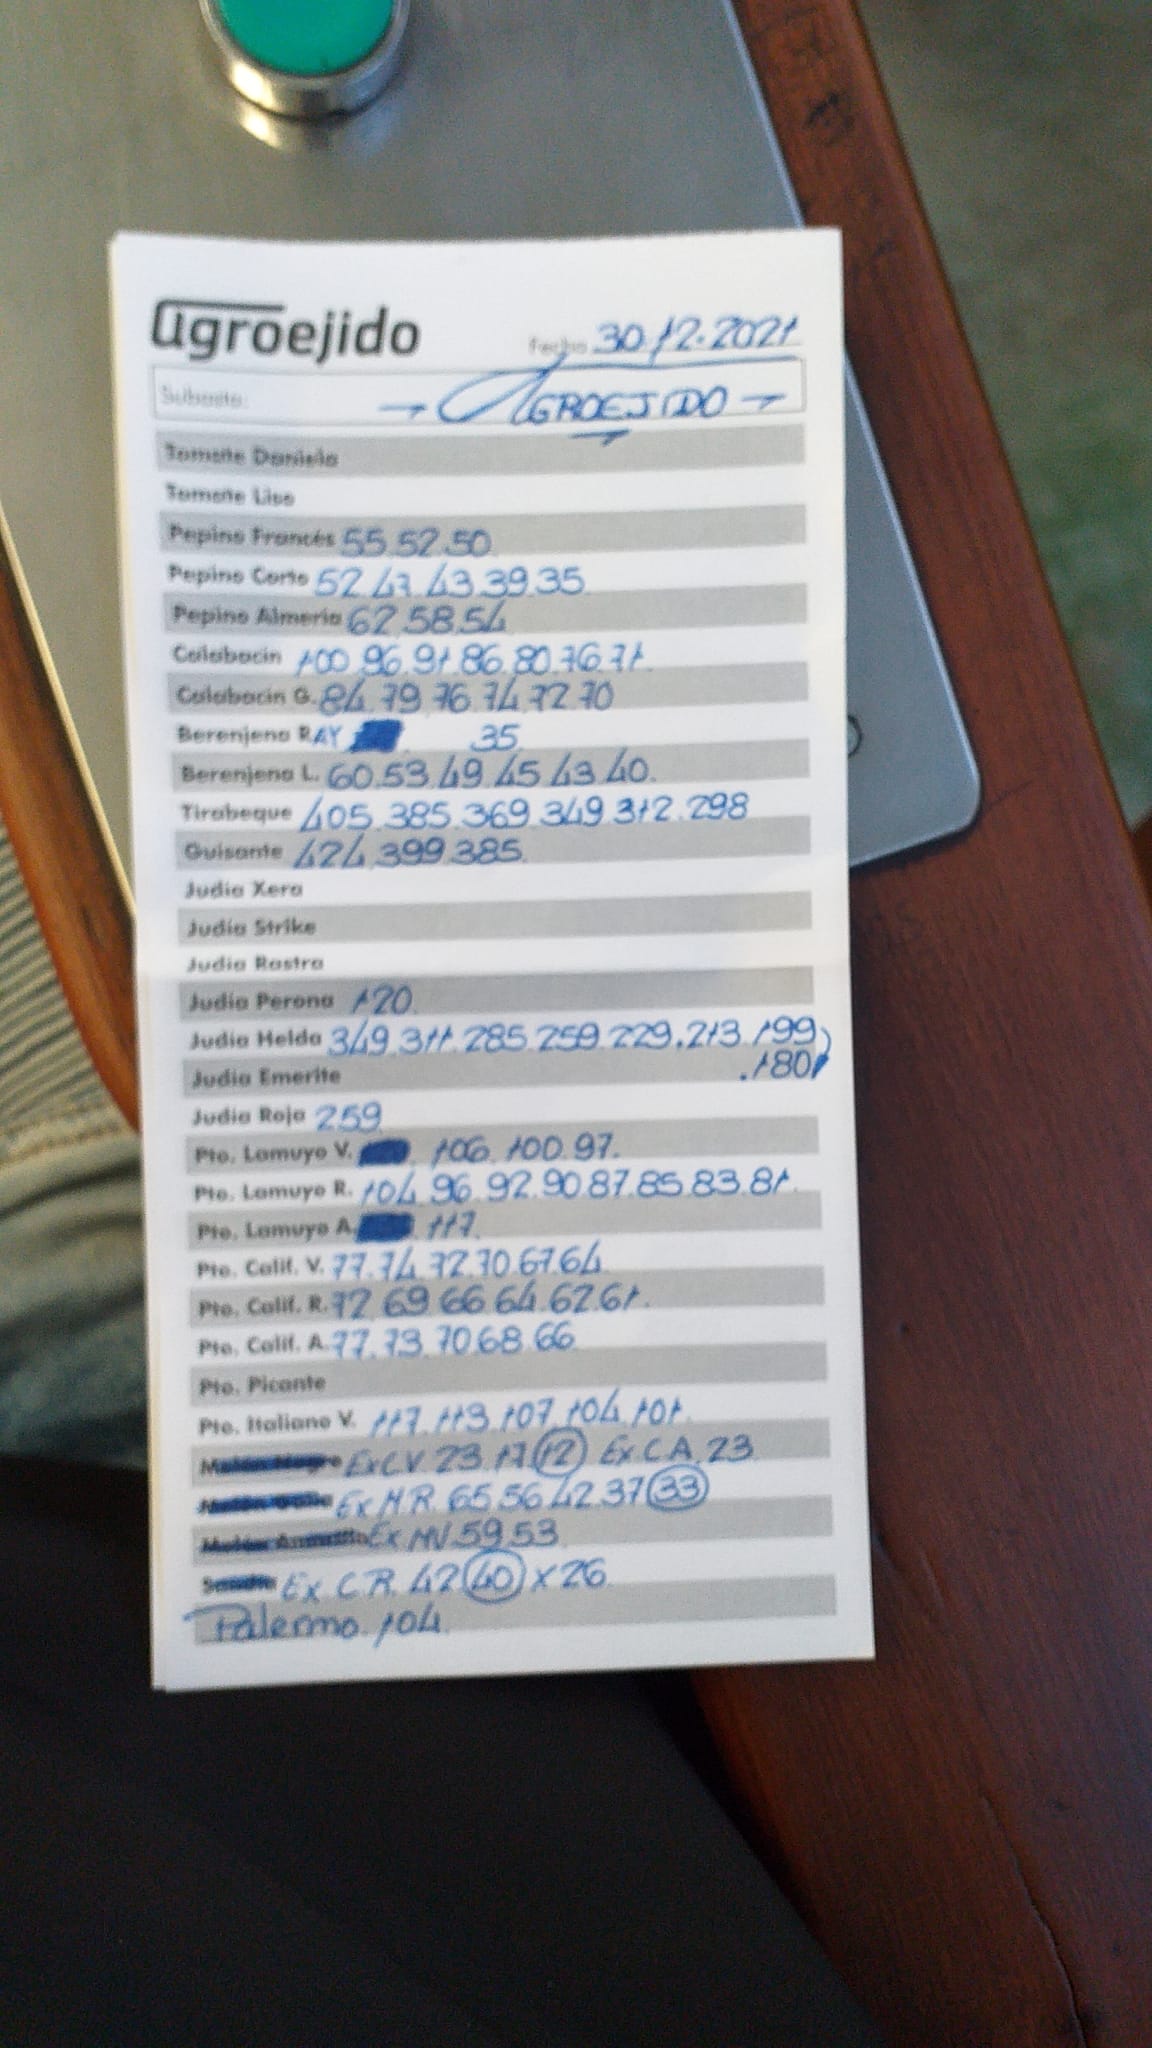 agroejido Fecha 30.12.2021
Subasta: → AGROEJIDO →
Tomate Daniela
Tomate Liso
Pepino Francés 55.52.50
Pepino Corto 52.47.43.39.35
Pepino Almería 62.58.54
Calabacin 100.96.91.86.80.76.71.
Calabacin G. 84.79.76.74.72.70
Berenjena RAY 35
Berenjena L. 60.53.49.45.43.40.
Tirabeque 405.385.369.349.312.298
Guisante 424.399.385.
Judia Xera
Judia Strike
Judia Rastra
Judia Perona 120.
Judia Helda 349.311.285.259.229.213.199
Judia Emerite .180
Judia Roja 259
Pto. Lamuyo V. 106.100.97.
Pto. Lamuyo R. 104.96.92.90.87.85.83.81.
Pto. Lamuyo A. 117.
Pto. Calif. V. 77.74.72.70.67.64.
Pto. Calif. R. 72.69.66.64.62.61.
Pto. Calif. A. 77.73.70.68.66
Pto. Picante
Pto. Italiano V. 117.113.107.104.101.
Ex C.V. 23.17.12 Ex C.A. 23
Ex M.R. 65.56.42.37.33
Ex MV. 59.53
Ex C.R. 42.40 x 26
Palermo. 104.